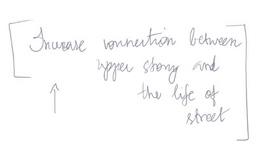 Increase connection between
upper storey and
the life of
street